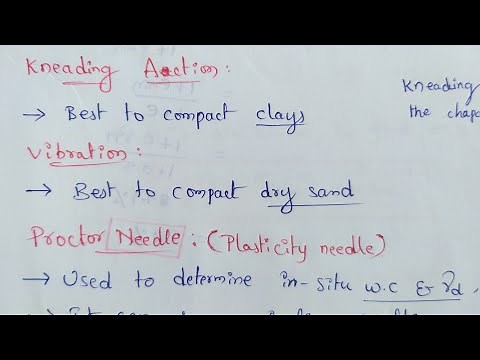 Kneading Action :
→ Best to compact clays
Kneading
the chapa
Vibration :
→ Best to compact dry sand
Proctor Needle : (Plasticity needle)
→ Used to determine in-situ w.c & γd.